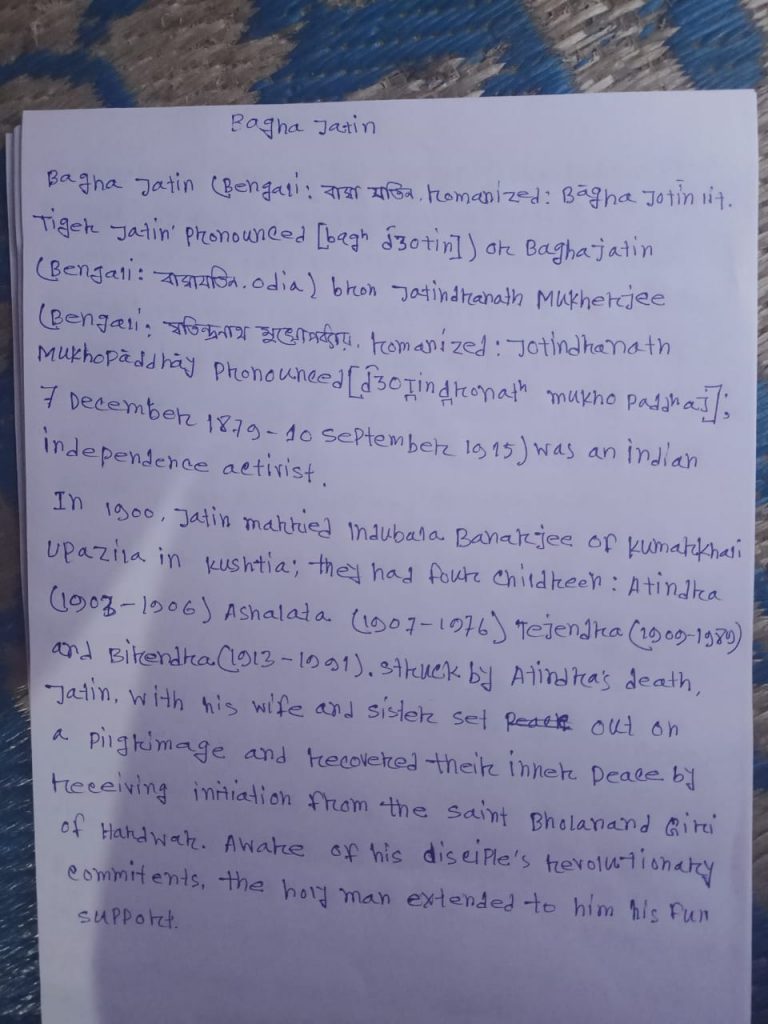 Bagha Jatin
Bagha Jatin (Bengali: বাঘা যতিন. romanized: Bāgha Jotin lit.
Tiger Jatin' pronounced [bagʰ d͡ʒotin]) or Baghajatin
(Bengali: বাঘাযতিন. Odia) bron Jatindranath Mukherjee
(Bengali: যতিন্দ্রনাথ মুখোপাধ্যায়. romanized: Jotindranath
Mukhopāddhāy pronounced [d͡ʒot̪ind̪ronatʰ mukho paddhaj];
7 December 1879 - 10 September 1915) was an indian
independence activist.
In 1900, Jatin married Indubala Banarjee of kumarkhali
Upazila in kushtia; they had four childreen: Atindra
(1903-1906) Ashalata (1907-1976) Tejendra (1909-1989)
and Birendra (1913-1991). struck by Atindra's death,
Jatin, with his wife and sister set out on
a pilgrimage and recovered their inner peace by
receiving initiation from the saint Bholanand Giri
of Hardwar. Aware of his disciple's revolutionary
commitents, the holy man extended to him his full
support.